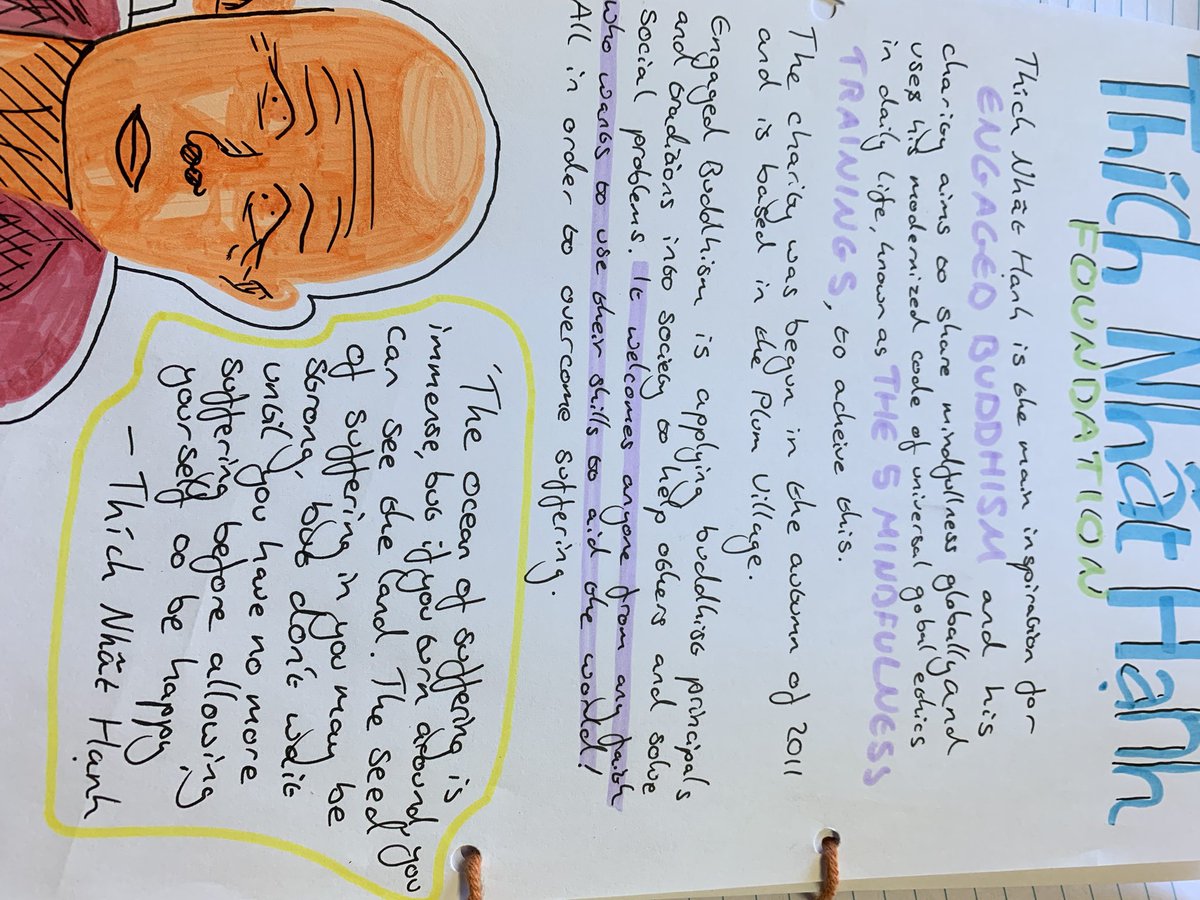 Thích Nhất Hạnh
FOUNDATION
Thich Nhất Hạnh is the main inspiration for
ENGAGED BUDDHISM and his
charity aims to share mindfullness globally and
uses his modernized code of universal gobal ethics
in daily life, known as THE 5 MINDFULNESS
TRAININGS, to acheive this.
The charity was begun in the autumn of 2011
and is based in the Plum Village.
Engaged Buddhism is applying buddhist principals
and traditions into society to help others and solve
social problems. It welcomes anyone from any faith
who wants to use their skills to aid the world!
All in order to overcome suffering.
'The ocean of suffering is
immense, but if you turn around you
can see the land. The seed
of suffering in you may be
strong, but don't wait
until you have no more
suffering before allowing
yourself to be happy
– Thích Nhất Hạnh